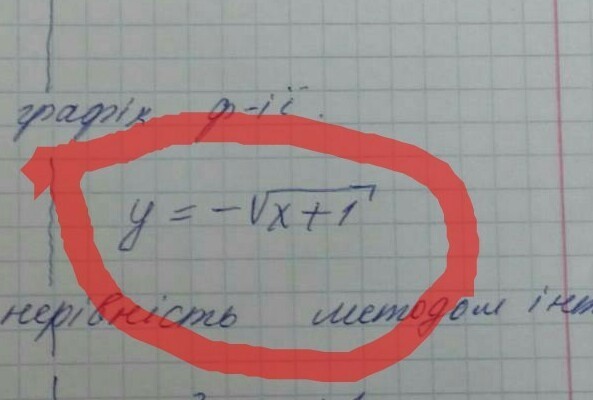 графік ф-ії.
y = -√x+1
нерівність методом інт